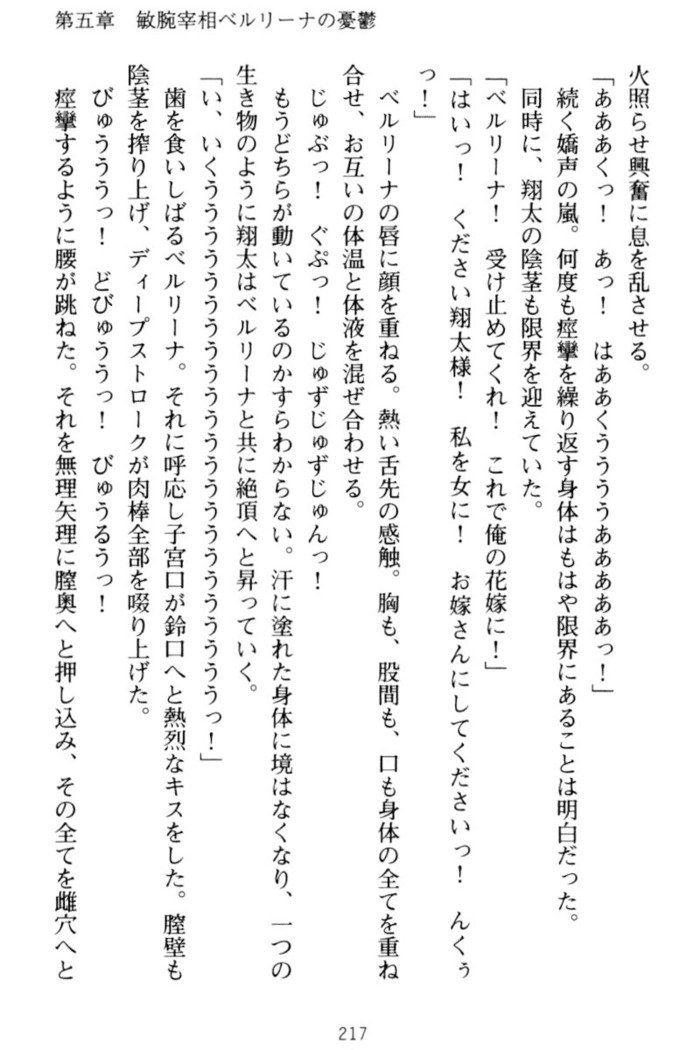 第五章　敏腕宰相ベルリーナの憂鬱
火照らせ興奮に息を乱させる。
「あああくっ！　あっ！　はああくうううううあああああっ！」
続く嬌声の嵐。何度も痙攣を繰り返す身体はもはや限界にあることは明白だった。
同時に、翔太の陰茎も限界を迎えていた。
「ベルリーナ！　受け止めてくれ！　これで俺の花嫁に！」
「はいっ！　ください翔太様！　私を女に！　お嫁さんにしてくださいっ！　んくぅ
っ！」
ベルリーナの唇に顔を重ねる。熱い舌先の感触。胸も、股間も、口も身体の全てを重ね
合せ、お互いの体温と体液を混ぜ合わせる。
じゅぶっ！　ぐぷっ！　じゅずじゅずじゅんっ！
もうどちらが動いているのかすらわからない。汗に塗れた身体に境はなくなり、一つの
生き物のように翔太はベルリーナと共に絶頂へと昇っていく。
「い、いくうううううううううううううううううううううっ！」
歯を食いしばるベルリーナ。それに呼応し子宮口が鈴口へと熱烈なキスをした。膣壁も
陰茎を搾り上げ、ディープストロークが肉棒全部を啜り上げた。
びゅうううっ！　どびゅううっ！　びゅうるうっ！
痙攣するように腰が跳ねた。それを無理矢理に膣奥へと押し込み、その全てを雌穴へと
217